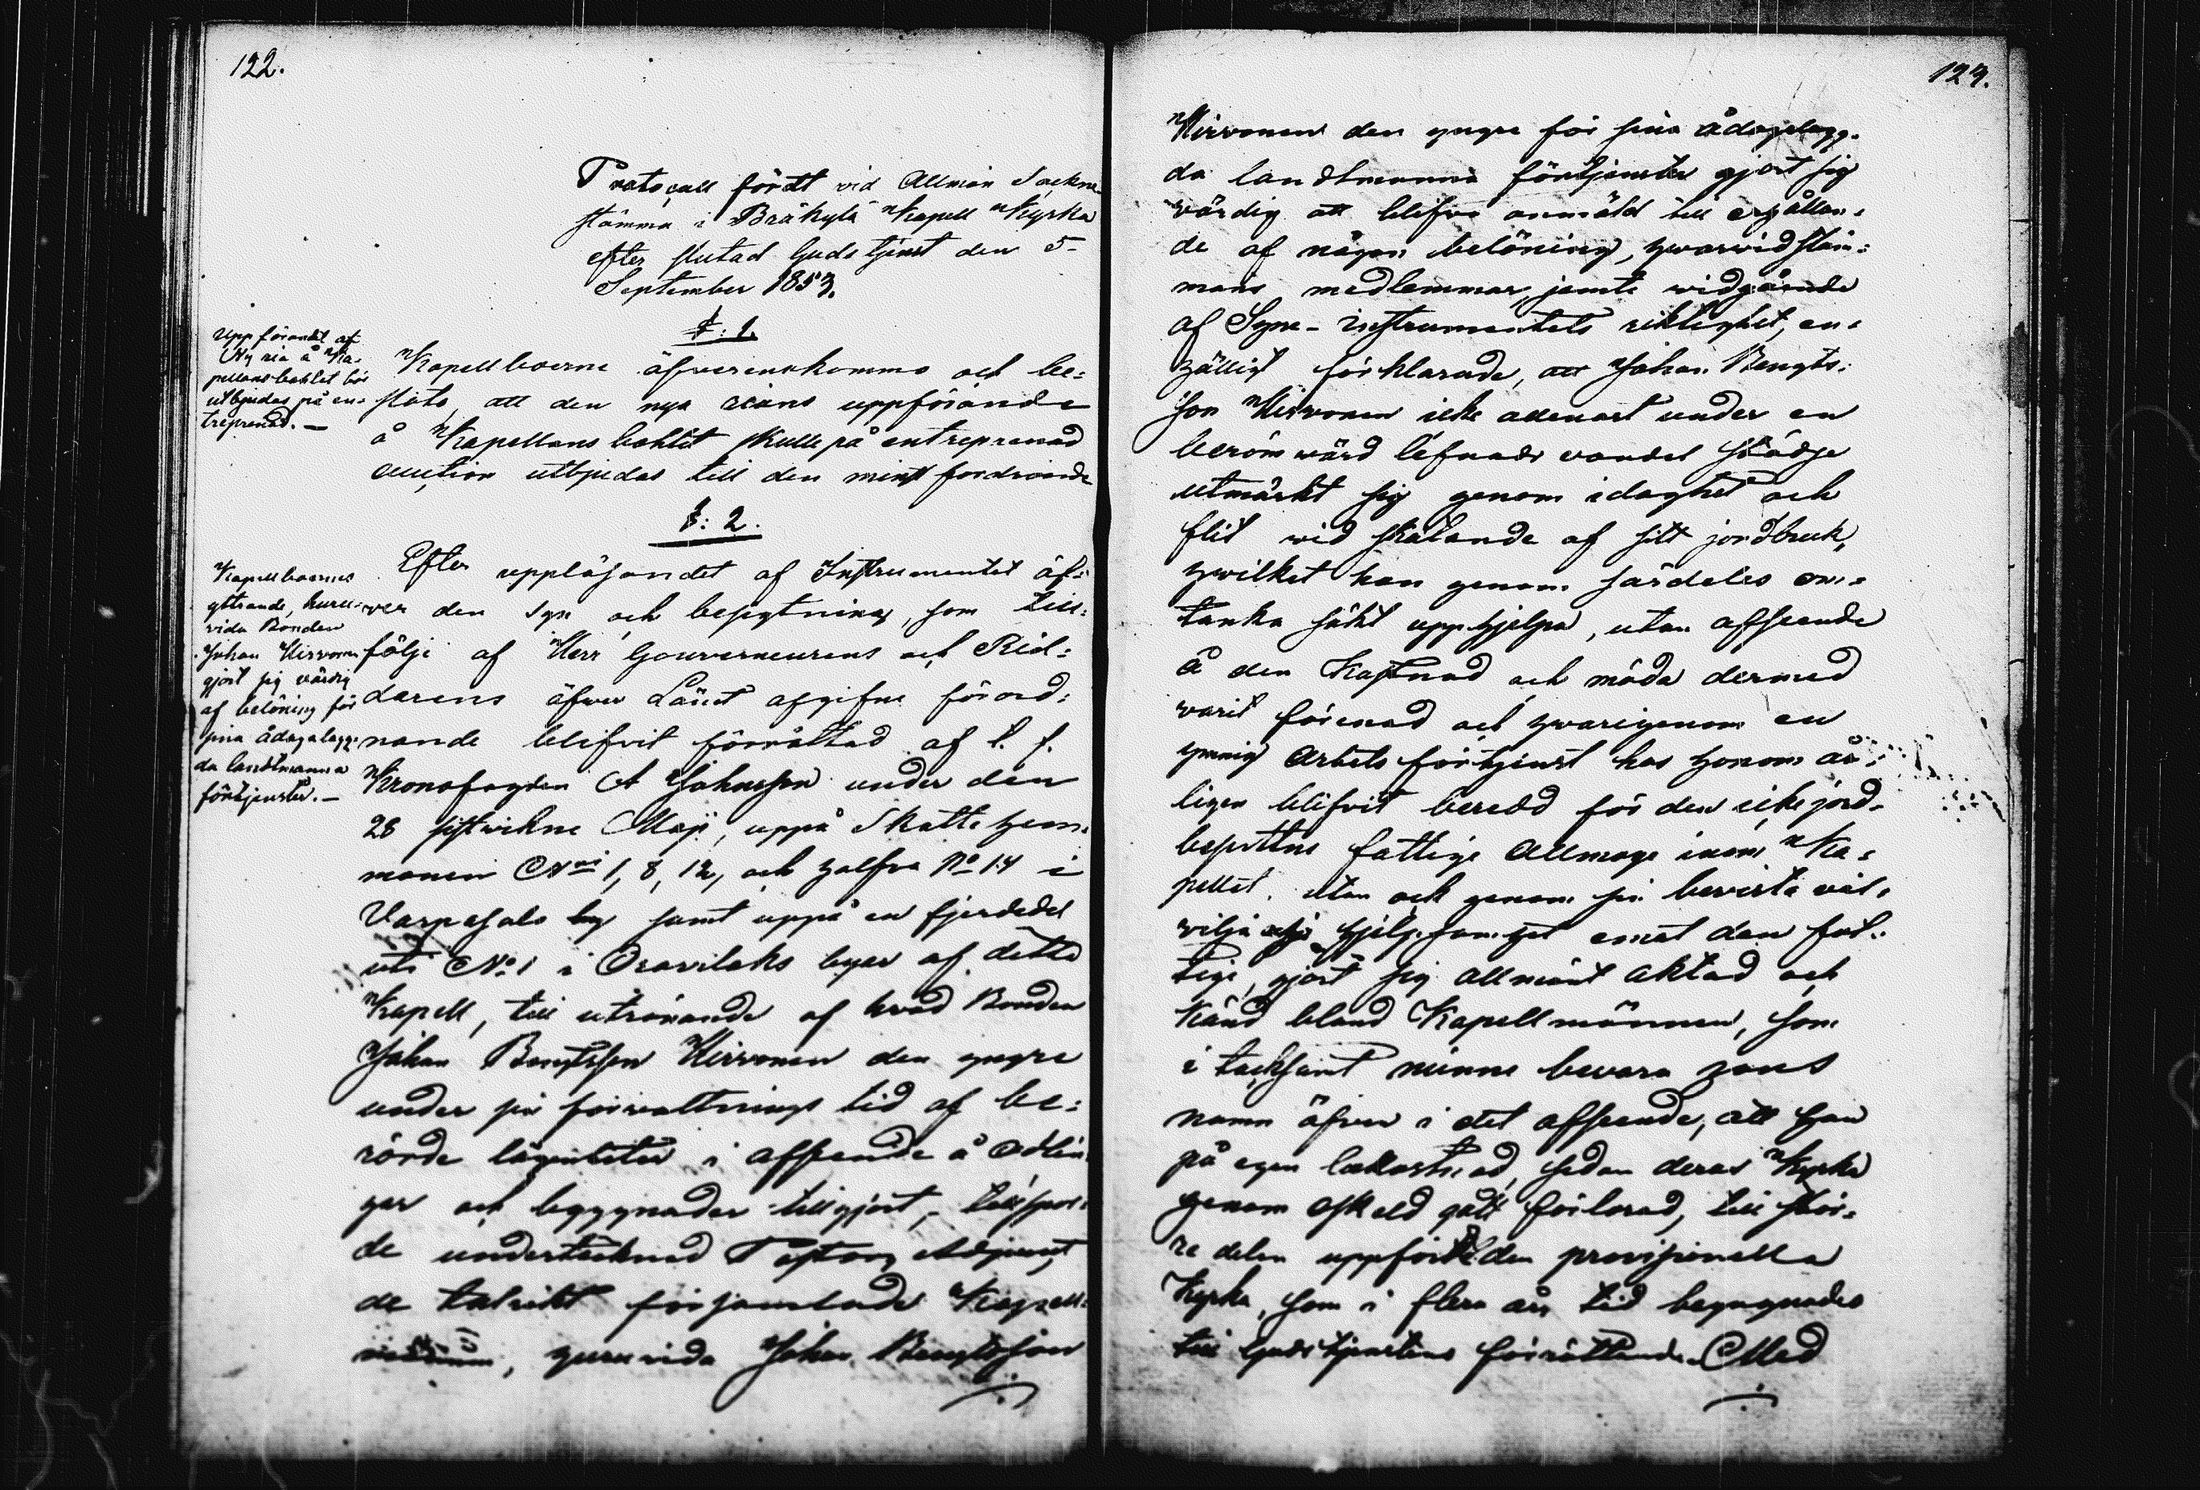 122.
Protocoll fördt vid Allmän Sockne-
stämma i Bräkylä Kapell Kyrka
efter slutad Gudstjenst den 5
September 1853.
§: 1.
Uppförandet af
Ny ria å Ka-
pellansbohlet bör
utbjudas på en-
treprenad. —
Kapellboerne öfverenskommo och be-
slöto, att den nya rians uppförande
å Kapellansbohlet skulle på entreprenad
auction utbjudas till den minst fordrande
§: 2.
Kapellboernes
yttrande, huru-
vida Bonden
Johan Hirvonen
gjort sig värdig
af belöning för
sina ådagalagg-
da landtmanna
förtjenster. —
Efter uppläsandet af Instrumentet öf-
ver den syn och besigtning, som till-
följe af Herr Gouverneurens och Rid-
darens öfver Länet afgifne förord-
nande blifvit förrättad af t. f.
Kronofogden A Johnsson under den
28 sistvikne Maji, uppå Skattehem-
manen N:ris 1, 8, 12, och halfva No 14 i
Varpasalo by samt uppå en fjerdedel
uti No 1 i Oravilaks byar af detta
Kapell, till utrönande af hvad Bonden
Johan Bengtsson Hirvonen den yngre
under sin förvaltnings tid af be-
rörde lägenheter i afseende å odlin-
gar och byggnader tillgjort, tillspor-
de undertecknad Pastors Adjunct,
de talrikt församlade Kapell-
, huruvida Johan Bengtsson
123.
Hirvonen den yngre för sina ådagalagg-
da landtmanna förtjenster gjort sig
värdig att blifva anmäld till erhållan-
de af någon belöning, hvarvid stäm-
mans medlemmar, jemte vidgående
af Syne-instrumentets riktighet, en-
hälligt förklarade, att Johan Bengts-
son Hirvonen icke allenast under en
berömvärd lefnads vandel städse
utmärkt sig genom idoghet och
flit vid skötande af sitt jordbruk,
hvilket han genom särdeles om-
tanka sökt upphjelpa, utan afseende
å den kostnad och möda dermed
varit förenad och hvarigenom en
ymnig arbetsförtjenst hos honom år-
ligen blifvit beredd för den icke jord-
besittne fattige Allmoge inom Ka-
pellet. utan och genom sin beviste väl-
vilja och hjelpsamhet emot den fat-
tige, gjort sig allmänt aktad och
känd bland Kapellmännen, som
i tacksamt minne bevara hans
namn äfven i det afseende, att han
på egen bekostnad, sedan deras Kyrka
genom åskeld gått förlorad, till stör-
re delen uppfört den provisionella
Kyrka, som i flera års tid begagnades
till Gudstjenstens förrättande. Med